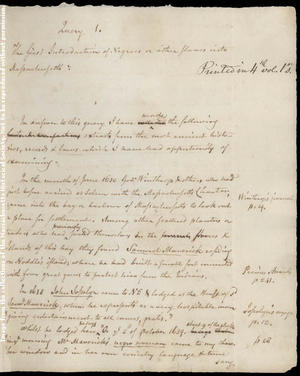 Query 1.
The first Introduction of Negroes or other Slaves into
Massachusetts.
Printed in 4th vol. 13.
made
In answer to this query I have the following
extracts from the most ancient histo-
ries, records & laws, which I have had opportunity of
examining.
In the month of June 1630 Govr Winthrop & others, who had
just before arrived at Salem with the Massachusetts Charter,
came into the bay or harbour of Massachusetts to look out
a place for settlement. Among other scattered planters or
traders who had seated themselves on the shores &
Islands of this bay they found Samuel Maverick residing
on Noddle's Island, where he had built a small fort mounted
with four great guns to protect him from the Indians.
Winthrop's journal
In 1638 John Josselyn came to N E & lodged at the House of sd
Saml Maverick, whom he represents as a very hospitable man
giving entertainment to all comers, gratis.
Josselyn's voyage
While he lodged here, "the 2d of October 1639,
morning Mr Maverick's negro woman came to my cham-
ber window and in her own country language & tune
sang